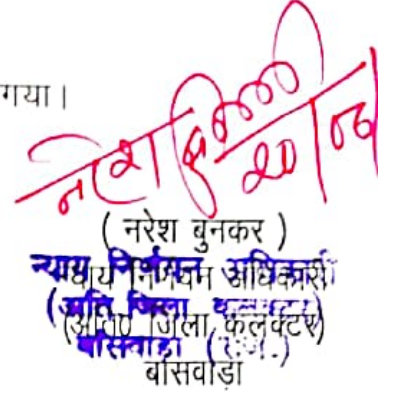 गया।
20/06
( नरेश बुनकर )
न्याय निर्णयन अधिकारी
(अति० जिला कलक्टर)
बांसवाड़ा